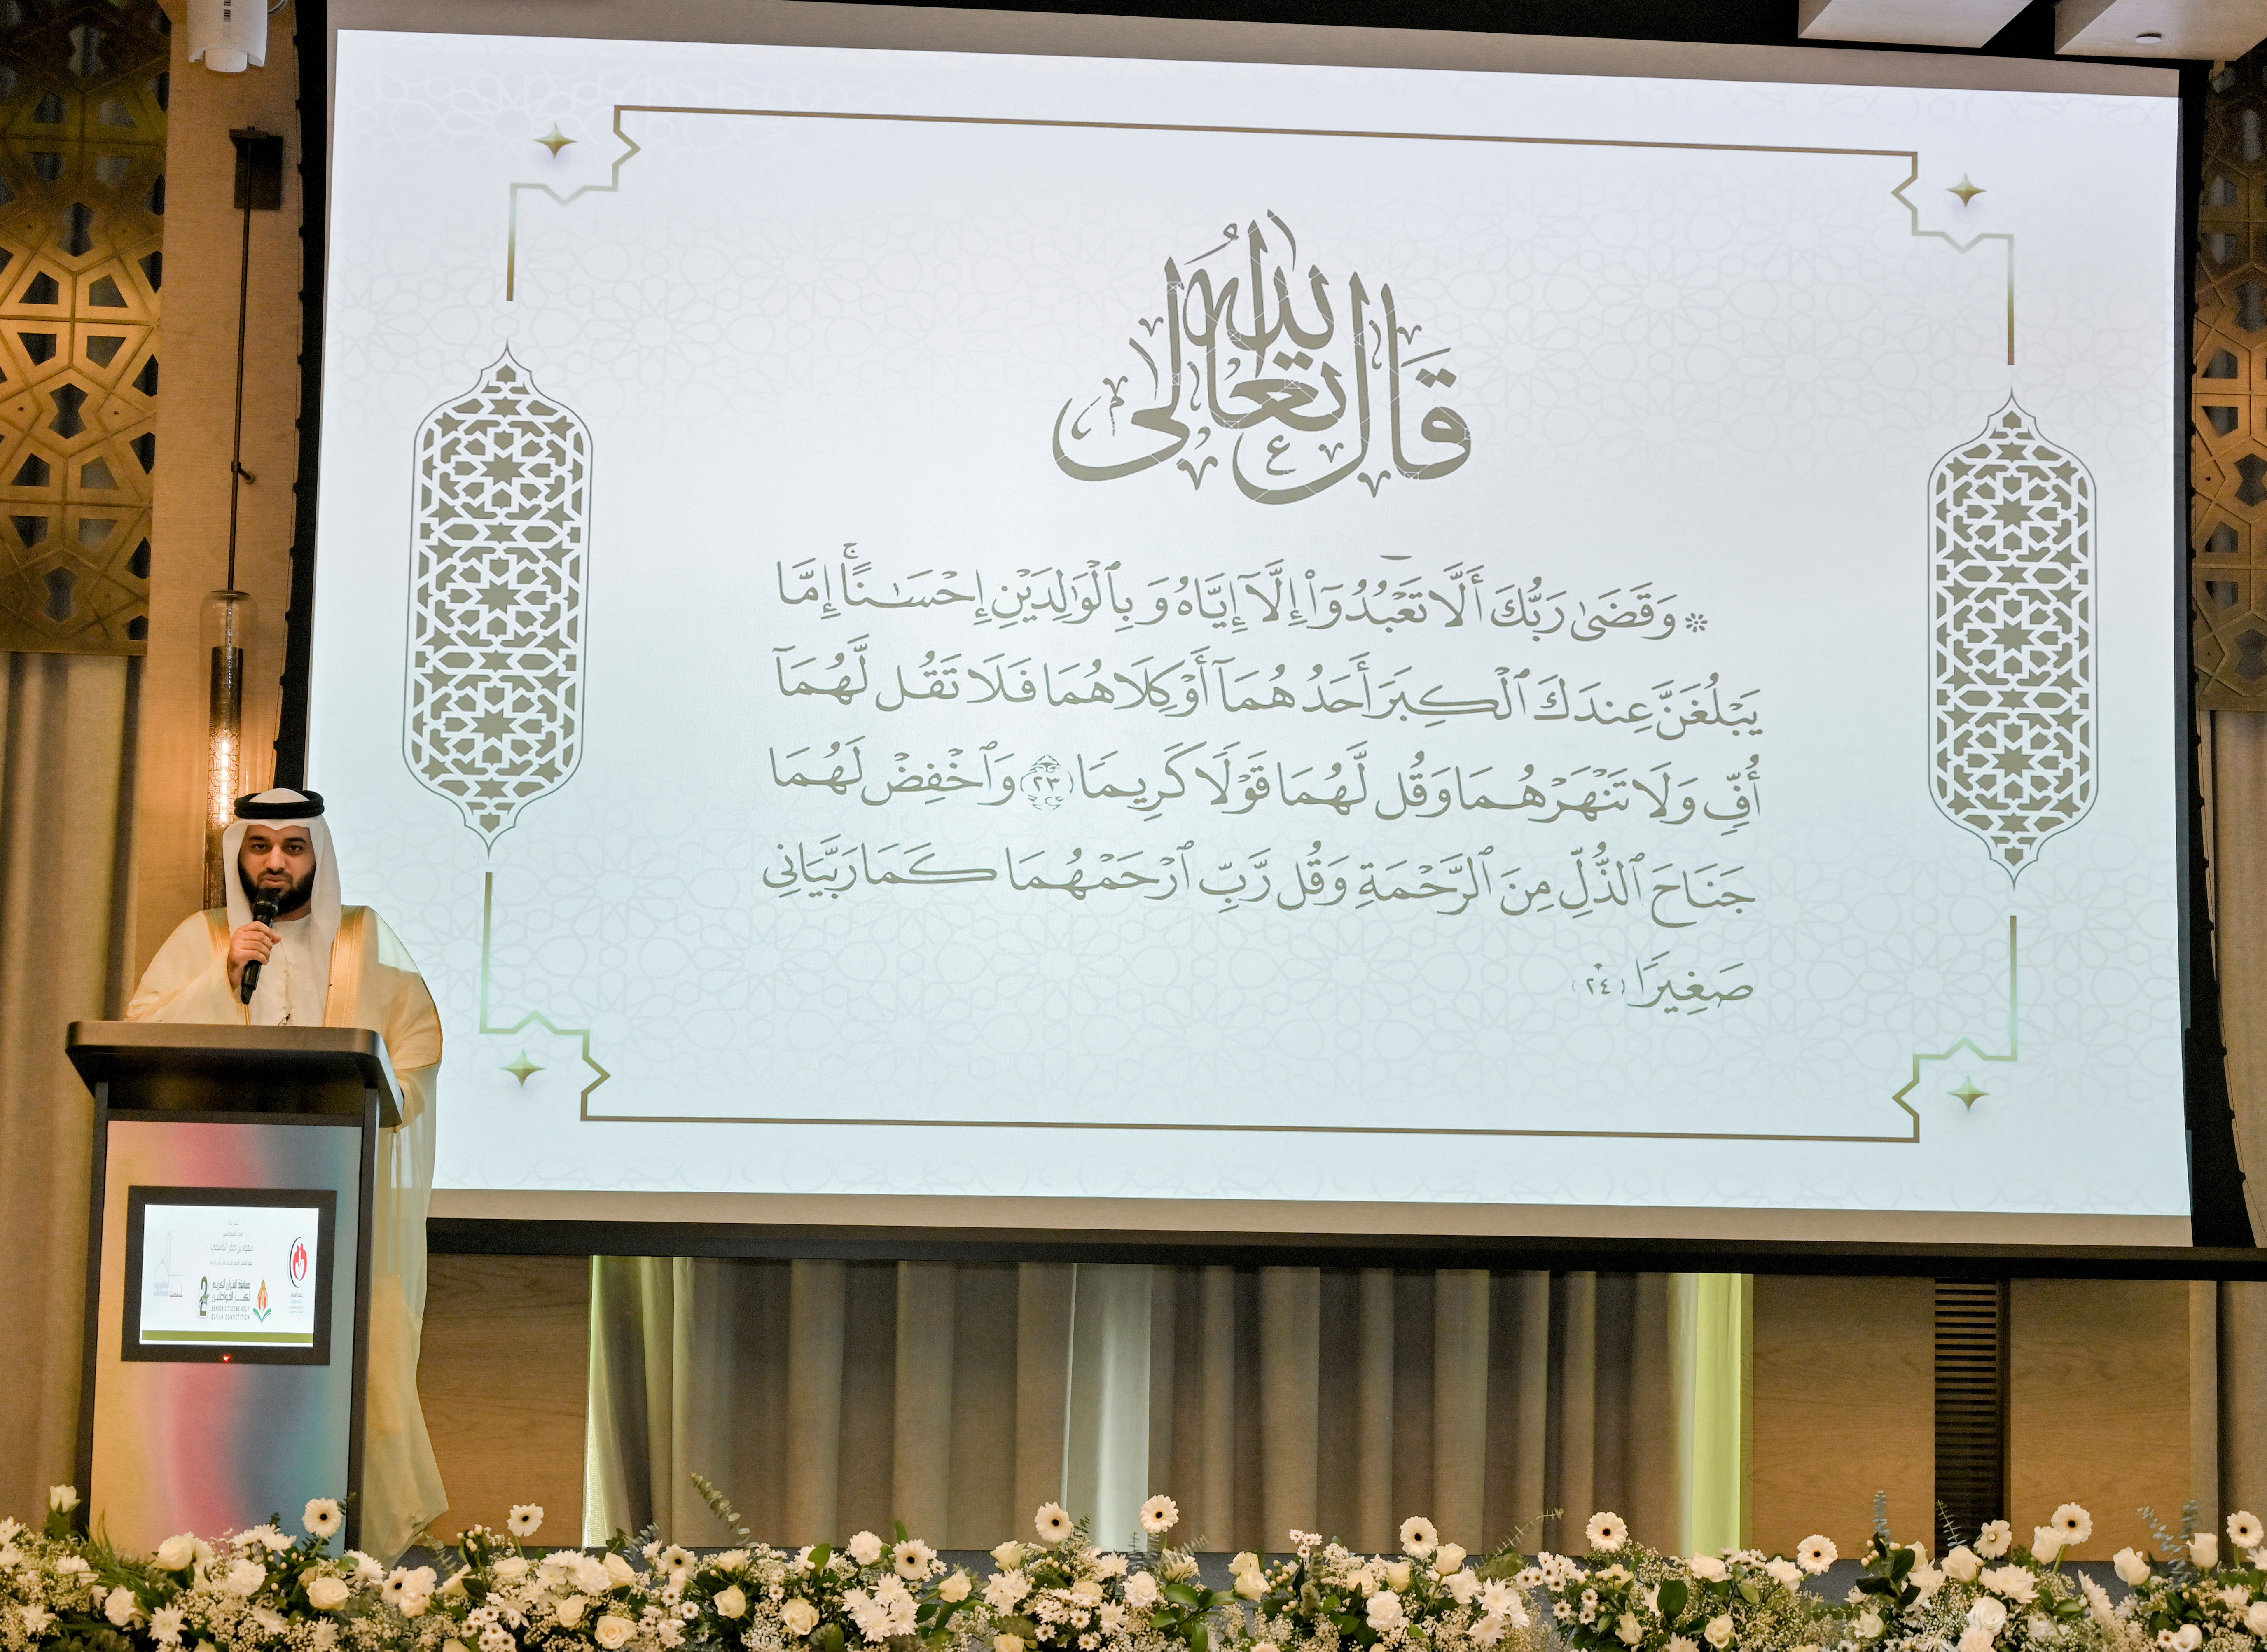 قال الله تعالى
۞ وَقَضَىٰ رَبُّكَ أَلَّا تَعۡبُدُوٓاْ إِلَّآ إِيَّاهُ وَبِٱلۡوَٰلِدَيۡنِ إِحۡسَـٰنًاۚ إِمَّا
يَبۡلُغَنَّ عِندَكَ ٱلۡكِبَرَ أَحَدُهُمَآ أَوۡ كِلَاهُمَا فَلَا تَقُل لَّهُمَآ
أُفّٖ وَلَا تَنۡهَرۡهُمَا وَقُل لَّهُمَا قَوۡلٗا كَرِيمٗا ﴿٢٣﴾ وَٱخۡفِضۡ لَهُمَا
جَنَاحَ ٱلذُّلِّ مِنَ ٱلرَّحۡمَةِ وَقُل رَّبِّ ٱرۡحَمۡهُمَا كَمَا رَبَّيَانِي
صَغِيرٗا (٢٤)
سعود بن صقر القاسمي
مسابقة القرآن الكريم
لكبار المواطنين 2
SENIOR CITIZENS HOLY
QURAN COMPETITION